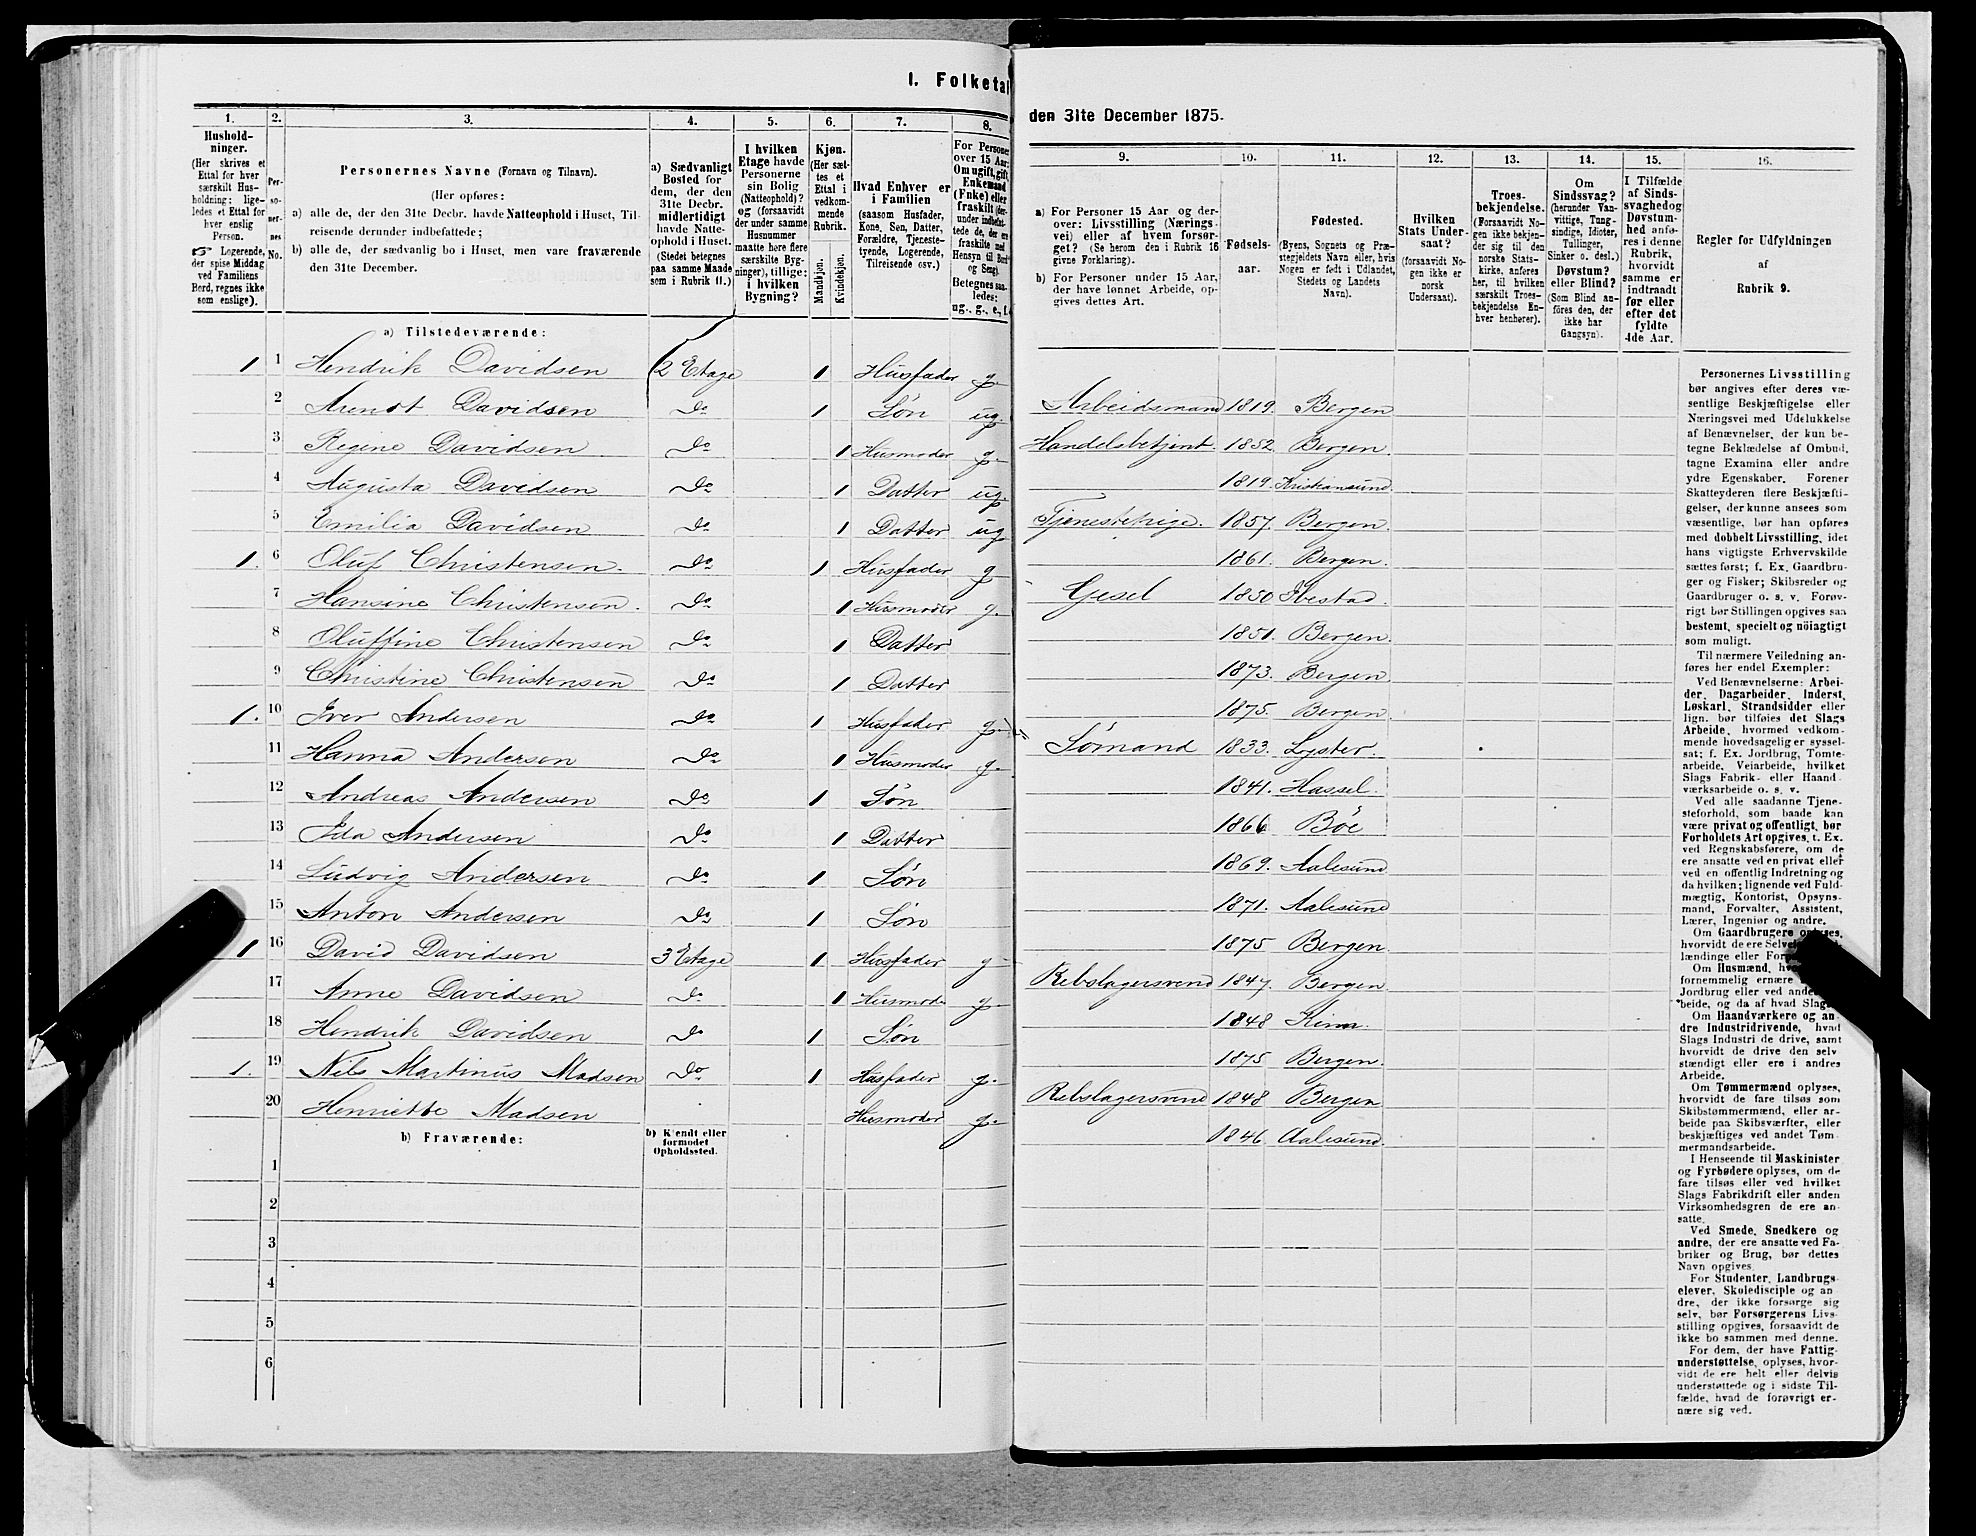 I. Folketal
den 31te December 1875.
1. 2. 3. 4. 5. 6. 7. 8.
Hushold-
ninger.
(Her skrives et
Ettal for hver
særskilt Hus-
holdning: lige-
ledes et Ettal for
hver enslig
Person.
☞ Logerende,
der spise Middag
ved Familiens
Bord, regnes ikke
som enslige).
Per-
so-
ner-
nes
No.
Personernes Navne (Fornavn og Tilnavn).
(Her opføres:
a) alle de, der den 31te Decbr. havde Natteophold i Huset, Til-
reisende derunder indbefattede;
b) alle de, der sædvanlig bo i Huset, men vare fraværende
den 31te December.
a) Sædvanligt
Bosted for
dem, der den
31te Decbr.
midlertidigt
havde Natte-
ophold i Huset.
(Stedet betegnes
paa samme Maade
som i Rubrik 11.)
I hvilken
Etage havde
Personerne
sin Bolig
(Natteophold)?
og (forsaavidt
der under samme
Husnummer
maatte høre flere
særskilte Byg-
ninger), tillige:
i hvilken
Bygning?
Kjøn.
(Her sæt-
tes et
Ettal i
vedkom-
mende
Rubrik.
Mandkjøn.
Kvindekjøn.
Hvad Enhver er
i Familien
(saasom Husfader,
Kone, Søn, Datter,
Forældre, Tjeneste-
tyende, Logerende,
Tilreisende osv.)
For Personer
over 15 Aar:
Om ugift, gift,
Enkemand
(Enke) eller
fraskilt (der-
under indbefat-
tede de, der ere
fraskilte med
Hensyn til Bord
og Seng).
Betegnes saa-
ledes:
ug., g., e., f.
a) Tilstedeværende:
1 1 Hendrik Davidsen 2 Etage 1 Husfader g.
2 Arendt Davidsen do 1 Søn ug.
3 Regine Davidsen do 1 Husmoder g.
4 Augusta Davidsen do 1 Datter ug.
5 Emilia Davidsen do 1 Datter ug
1. 6 Oluf Christensen. do 1 Husfader g
7 Hansine Christensen. do 1 Husmoder g.
8 Oluffine Christensen do 1 Datter
9 Christine Christensen do 1 Datter
1. 10 Iver Andersen do 1 Husfader g.
11 Hanna Andersen do 1 Husmoder g.
12 Andreas Andersen do 1 Søn
13 Ida Andersen do 1 Datter
14 Ludvig Andersen do 1 Søn
15 Anton Andersen do 1 Søn
1 16 David Davidsen 3 Etage 1 Husfader g
17 Anne Davidsen do 1 Husmoder g.
18 Hendrik Davidsen do 1 Søn
1. 19 Nils Martinus Madsen do 1 Husfader g.
20 Henriette Madsen Husmoder g.
b) Fraværende:
b) Kjendt eller
formodet
Opholdssted.
1
2
3
4
5
6
9. 10. 11. 12. 13. 14. 15. 16.
a) For Personer 15 Aar og der-
over: Livsstilling (Nærings-
vei) eller af hvem forsør-
get? (Se herom den i Rubrik 16
givne Forklaring).
b) For Personer under 15 Aar,
der have lønnet Arbeide, op-
gives dettes Art.
Fødsels-
aar.
Fødested.
(Byens, Sognets og Præ-
stegjeldets Navn eller, hvis
Nogen er født i Udlandet,
Stedets og Landets
Navn).
Hvilken
Stats Under-
saat?
(forsaavidt No-
gen ikke er
norsk
Undersaat).
Troes-
bekjendelse.
(Forsaavidt No-
gen ikke bekjen-
der sig til den
norske Stats-
kirke, anføres
her, til hvilken
særskilt Troes-
bekjendelse En-
hver henhører).
Om
Sindssvag?
(herunder Van-
vittige, Tung-
sindige, Idioter,
Tullinger,
Sinker o. desl.)
Døvstum?
eller Blind?
(Som Blind an-
føres den, der
ikke har
Gangsyn).
I Tilfælde
af Sinds-
svaghed og
Døvstum-
hed anfø-
res i denne
Rubrik,
hvorvidt
samme er
indtraadt
før eller
efter det
fyldte
4de Aar.
Regler for Udfyldningen
af
Rubrik 9.
Arbeidsmand 1819. Bergen
Handelsbetjent. 1852. Bergen.
1819. Kristiansund.
Tjenestepige. 1857. Bergen.
1861. Bergen.
Gesel 1850 Ibestad.
1851. Bergen.
1873. Bergen.
1875. Bergen.
Sømand 1833. Lyster.
1841. Hassel.
1866 Böe
1869. Aalesund
1871. Aalesund
1875 Bergen.
Rebslagersvend 1847. Bergen.
1848 Kinn.
1875 Bergen.
Rebslagersvend 1848 Bergen
1846 Aalesund.
Personernes Livsstilling
bør angives efter deres væ-
sentlige Beskjæftigelse eller
Næringsvei med Udelukkelse
af Benævnelser, der kun be-
tegne Beklædelse af Ombud,
tagne Examina eller andre
ydre Egenskaber. Forener
Skatteyderen flere Beskjæfti-
gelser, der kunne ansees som
væsentlige, bør han opføres
med dobbelt Livsstilling, idet
hans vigtigste Erhvervskilde
sættes først; f. Ex. Gaardbru-
ger og Fisker; Skibsreder og
Gaardbruger o. s. v. Forøv-
rigt bør Stillingen opgives saa
bestemt, specielt og nöiagtigt
som muligt.
Til nærmere Veiledning an-
føres her endel Exempler:
Ved Benævnelserne: Arbei-
der, Dagarbeider, Inderst,
Løskarl, Strandsidder eller
lign. bør tilføies det Slags
Arbeide, hvormed vedkom-
mende hovedsagelig er syssel-
sat; f. Ex. Jordbrug, Tømte-
arbeide, Veiarbeide, hvilket
Slags Fabrik- eller Haand-
værksarbeide o. s. v.
Ved alle saadanne Tjene-
steforhold, som baade kan
være privat og offentligt, bør
Forholdets Art opgives, t. Ex.
ved Regnskabsførere, om de
ere ansatte ved en privat eller
ved en offentlig Indretning og
da hvilken; lignende ved Fuld-
mægtig, Kontorist, Opsyns-
mand, Forvalter, Assistent,
Lærer, Ingeniør og andre.
Om Gaardbrugere oplyses,
hvorvidt de ere
lændinge eller
Om Husmænd,
fornemmelig ernære
Jordbrug eller ved
beide, og da af hvad
Om Haandværkere og an-
dre Industridrivende, hvad
Slags Industri de drive, samt
hvorvidt de drive den selv-
stændigt eller ere i andres
Arbeide.
Om Tømmermænd oplyses,
hvorvidt de fare tilsøs som
Skibstømmermænd, eller ar-
beide paa Skibsværfter, eller
beskjæftiges ved andet Tøm-
mermandsarbeide.
I Henseende til Maskinister
og Fyrbødere oplyses, om de
fare tilsøs eller ved hvilket
Slags Fabrikdrift eller anden
Virksomhedsgren de ere an-
satte.
Ved Smede, Snedkere og
andre, der ere ansatte ved Fa-
briker og Brug, bør dettes
Navn opgives.
For Studenter, Landbrugs-
elever, Skoledisciple og an-
dre, der ikke forsørge sig
selv, bør Forsørgerens Livs-
stilling opgives, forsaavidt de
ikke bo sammen med denne.
For dem, der have Fattig-
understøttelse, oplyses, hvor-
vidt de ere helt eller delvis
understøttede og i sidste Til-
fælde, hvad de forøvrigt er-
nære sig ved.